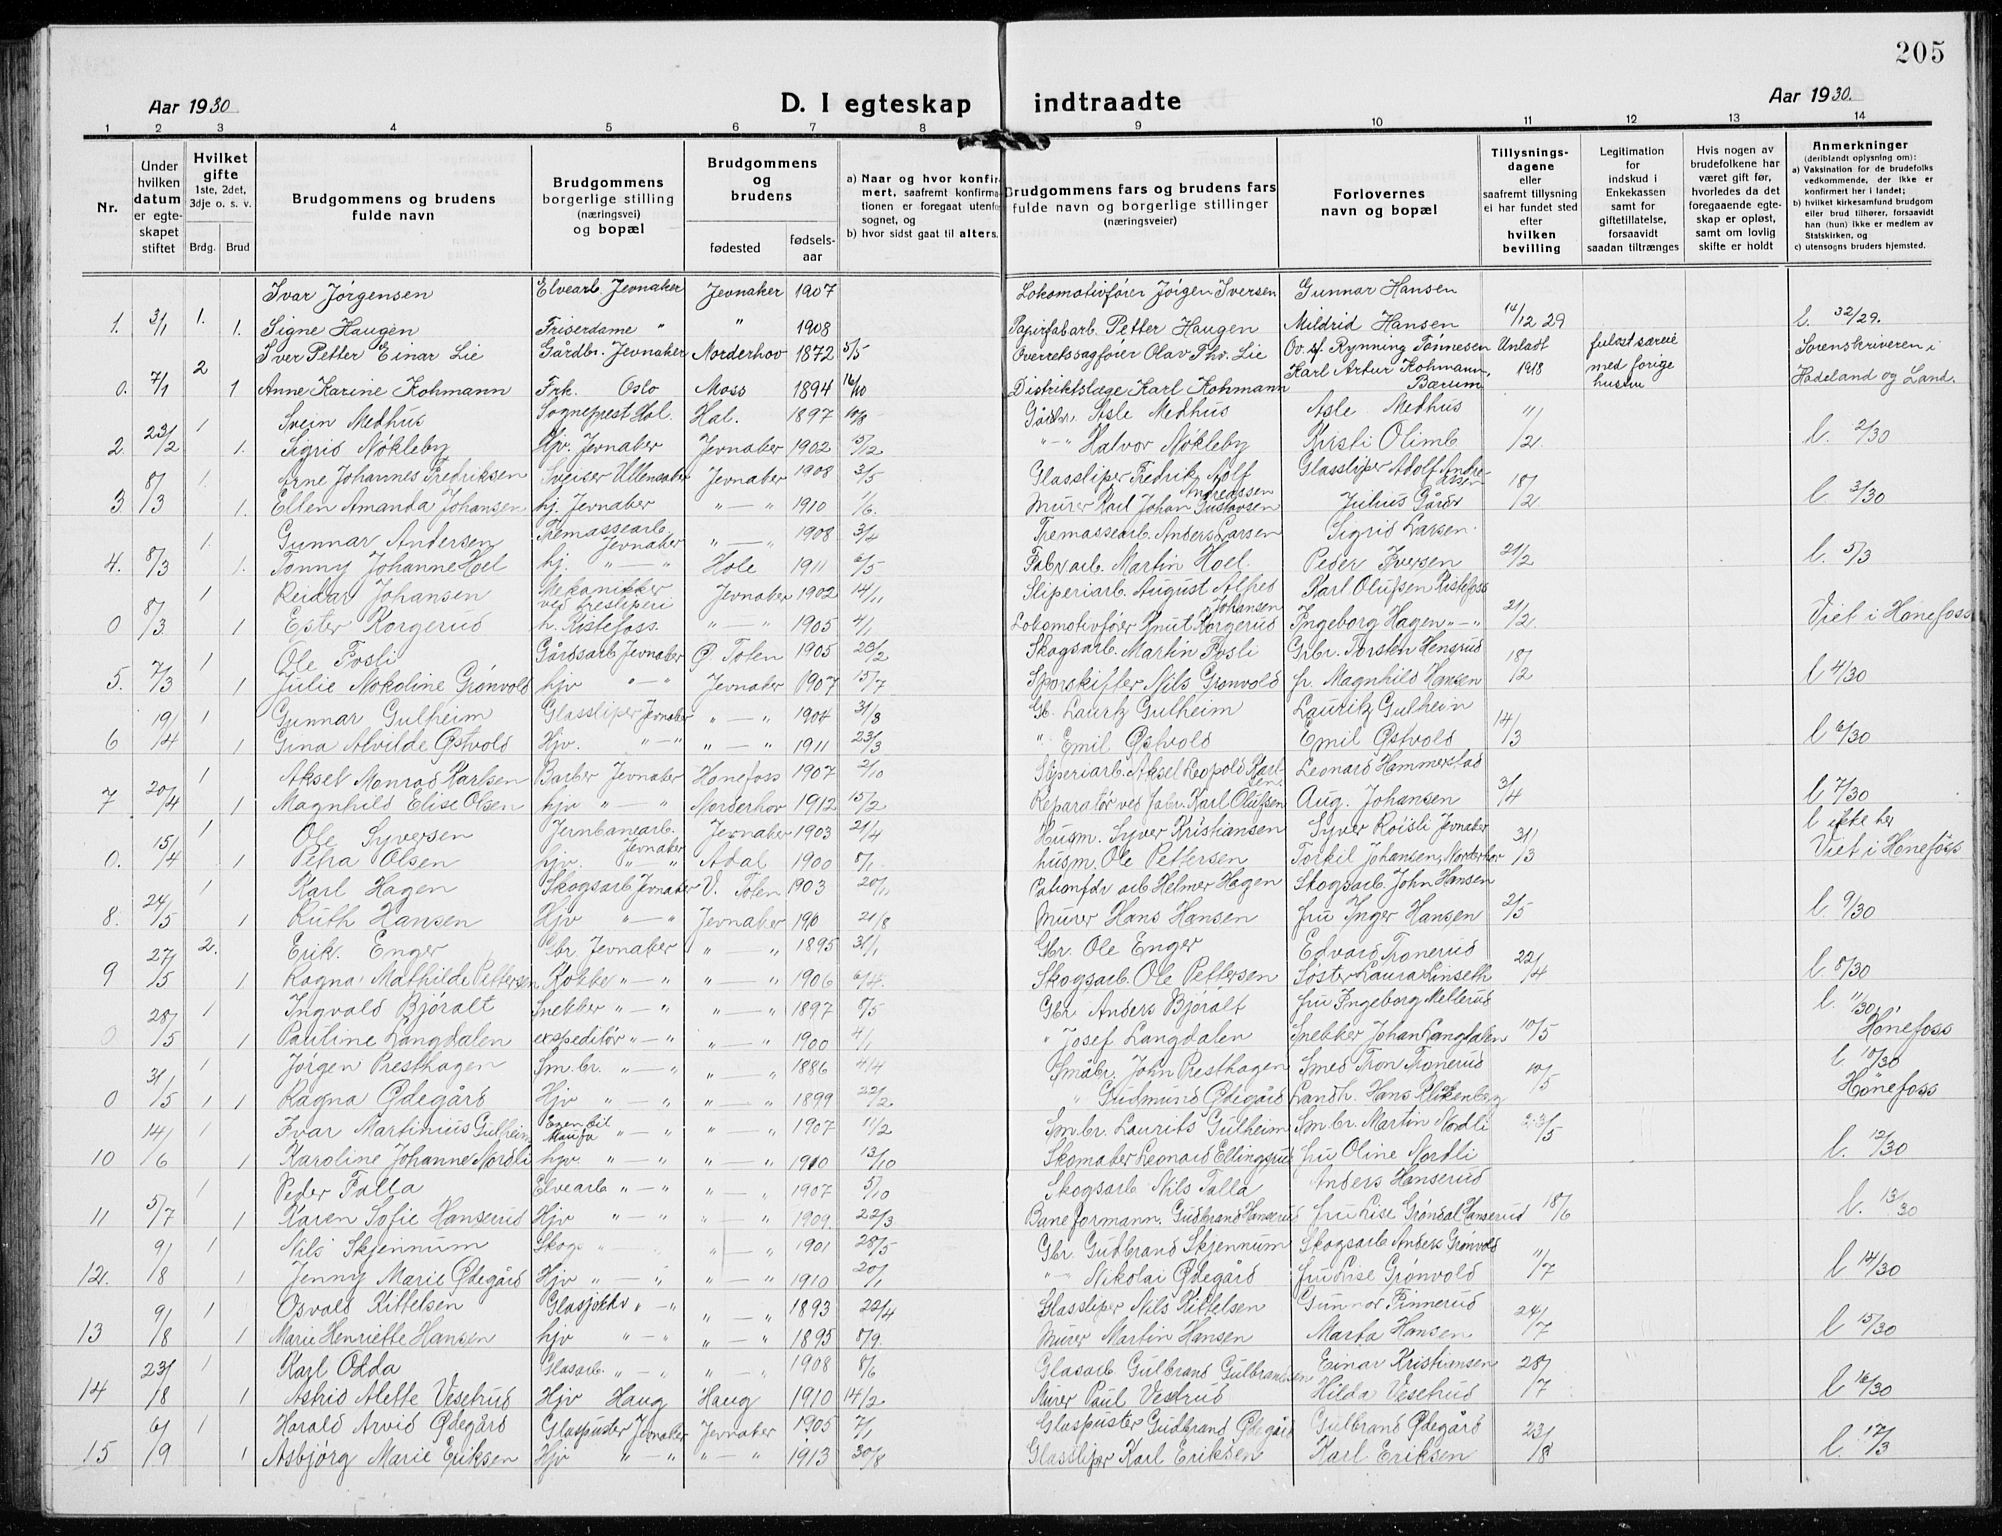 205
Aar 1930
D. I egteskap indtraadte
Aar 1930.
1 2 3 4 5 6 7 8 9 10 11 12 13 14
Nr.
Under hvilken datum er egteskapet stiftet
Hvilket gifte 1ste, 2det, 3dje o. s. v.
Brdg. Brud
Brudgommens og brudens fulde navn
Brudgommens borgerlige stilling (næringsvei) og bopæl
Brudgommens og brudens
fødested
fødsels-aar
a) Naar og hvor konfirmert, saafremt konfirmationen er foregaat utenfor sognet, og
b) hvor sidst gaat til alters.
Brudgommens fars og brudens fars fulde navn og borgerlige stillinger (næringsveier)
Forlovernes navn og bopæl
Tillysnings-dagene eller saafremt tillysning ei har fundet sted efter hvilken bevilling
Legitimation for indskud i Enkekassen samt for giftetillatelse, forsaavidt saadan tiltrænges
Hvis nogen av brudefolkene har været gift før, hvorledes da det foregaaende egteskap er opløst, samt om lovlig skifte er holdt
Anmerkninger (deriblandt oplysning om):
a) Vaksination for de brudefolks vedkommende, der ikke er konfirmert her i landet;
b) hvilket kirkesamfund brudgom eller brud tilhører, forsaavidt han (hun) ikke er medlem av Statskirken, og
c) utensogns bruders hjemsted.
Ivar Jørgensen Elvearb. Jevnaker Jevnaker 1907 Lokomotivfører Jørgen Iversen Gunnar Hansen
1. 3/1 1. 1. Signe Haugen Friserdame " " 1908 Papirfabarb. Petter Haugen Mildrid Hansen 14/12 29 l. 32/29.
2 Iver Petter Einar Lie Gårdbr. Jevnaker Norderhov 1872 5/5 Overretssagfører Olav Thv. Lie Ov. sf. Rynning Tønnesen Unladt fulgt særeie Sorenskriveren i
0. 7/1 1 Anne Karine Kohmann Frk. Oslo Moss 1894 16/10 Distriktslæge Karl Kohmann Karl Artur Kohmann, Bærum 1918 med forige hustru Hadeland og Land.
1 Svein Medhus Sogneprest Hol. Hol. 1897 10/8 Gårdbr. Asle Medhus Asle Medhus 11/
2. 23/2 1. Sigrid Nøkleby Hjv. Jevnaker Jevnaker 1902 15/12 "-" Halvor Nøkleby Kirsti Olimb /2. l. 2/30
1. Arne Johannes Fredriksen Sveiser Ullensaker Jevnaker 1908 3/5 Glassliper Fredrik Adolf Andreassen Glassliper Adolf Andreassen 18/
3 8/3 1. Ellen Amanda Johansen hj. Jevnaker " — " 1910 1/6. Murer Karl Johan Gustavsen Julius Gårder /2. l 3/30
1. Gunnar Andersen Tremassearb. Jevnaker " — " 1908 3/4 Tremassearb. Anders Larsen Sigrid Larsen.
4. 8/3 1. Tonny Johanne Hoel hj. " — " Hole 1911 6/5 Fabr arb. Martin Hoel. Peder Iversen 21/2 l. 5/3
1 Reidar Johansen Mekanikker ved tresliperi Jevnaker 1902 14/11 Sliperiarb. August Alfred Johansen Karl Olufsen Kistefoss
0 8/3 1 Ester Korgerud h. Kistefoss. " — " 1905 4/1 Lokomotivfører Knut Korgerud Ingeborg Hagen "-" 21/2 Viet i Hønefoss
1 Ole Fosli Gårdsarb Jevnaker Ø. Toten 1905 23/2 Skogsarb. Martin Fosli Grbr. Torsten Hensrud
5. 7/3 1 Julie Nokoline Grønvold hjv " — " Jevnaker 1907 15/7 Sporskifter Nils Grønvold fr. Magnhild Hansen 18/2 l 4/30
1 Gunnar Gulheim Glassliper Jevnaker " — " 1904 31/8 Gb. Lauritz Gulheim Lauritz Gulheim
6 19/4 1 Gina Alvilde Østvold Hjv. " — " " — " 1911 23/3 " Emil Østvold Emil Østvold 14/3 l 6/30
1 Aksel Monrad Karlsen Barber Jevnaker Hønefoss 1907 2/10 Sliperiarb. Aksel Leopold Karlsen Leonard Hammerstad
7 20/4 1 Magnhild Elise Olsen hjv " — " Norderhov 1912 15/2 Reparatør ved fabr. Karl Olufsen Aug. Johansen 3/4 l 7/30
1 Ole Syversen Jernbanearb. Jevnaker Jevnaker 1903 21/4 Husm. Syver Kristiansen Syver Roisli Jevnaker l ikke her
0. 15/4 1 Petra Olsen hjv. " — " Adal 1900 8/1. husm. Ole Pettersen Torkil Johansen, Norderhov 31/3 Viet i Hønefoss
1 Karl Hagen Skogsarb Jevnaker V. Toten 1903 20/11 arb Helmer Hagen Skogsarb. John Hansen
8. 24/5 1 Ruth Hansen Hjv " — " Jevnaker 190 21/8 Murer Hans Hansen fru Inger Hansen 2/5 l. 9/30
2. Erik Enger Gbr Jevnaker " — " 1895 31/1 Gbr. Ole Enger Edvard Tronerud
9 27/5 1 Ragna Mathilde Pettersen Kokke " — " " — " 1906 6/4. Skogsarb. Ole Pettersen Søster Laura Linseth 22/4 l. 8/30
1 Ingvald Bjøralt Snekker " — " " — " 1897 8/5 Gbr Anders Bjøralt fru Ingeborg Mellerud l. 11/30
0 28/5 1 Pauline Langdalen ekspeditør " — " " — " 1900 4/1 " Josef Langdalen Snekker Johan Langdalen 10/5 Hønefoss
1 Jørgen Presthagen Sm. br. " — " " — " 1886 4/4 Småbr. John Presthagen Smed Tron Tronerud l 10/30
0 31/5 1 1 Ragna Ødegård Hjv " — " " — " 1899 22/2 " Gudmund Ødegård Landh. Hans Blikenberg 10/5 Hønefoss
1 Ivar Martinius Gulheim " — " " — " 1907 11/2 Sm br. Laurits Gulheim Sm br. Martin Nordli
10 14/6 1 Karoline Johanne Nordli hjv " — " " — " 1910 13/10 Skomaker Leonard Ellingsrud fru Oline Nordli 23/5 l. 12/30
1 Peder Falla Elvearb " — " " — " 1907 5/10 Skogsarb Nils Falla Anders Hanserud
11 5/7 1 Karen Sofie Hanserud Hjv " — " " — " 1909. 22/3 Baneformann. Gudbrand Hanserud fru Lise Grøndal Hanserud 18/6 l. 13/30
1 Nils Skjennum Skog " — " 1901 28/5 Gbr. Gudbrand Skjennum Skogsarb Anders Grønvold
12. 9/8 1 Jenny Marie Ødegård Hjv " — " " — " 1910 20/1 " — Nikolai Ødegård fru Lise Grønvold 11/7 l 14/30
1 Osvald Kittelsen " — " " — " 1893 22/4 Glassliper Nils Kittelsen Gunnar Finnerud
13 9/8 1 Marie Henriette Hansen hjv " — " " — " 1895 8/9. Murer Martin Hansen Marta Hansen 24/7 l 15/30
1 Karl Odda Glasarb. " — " " — " 1908 8/6 Glasarb Gulbrand Gulbrandsen Einar Kristiansen
14 23/8 1 Astrid Alette Vesetrud Hjv Haug Haug 1910 14/2 Murer Paul Vestrud Hilda Vesetrud 28/7 l 16/30
1 Harald Arvid Ødegård Glaspuster Jevnaker Jevnaker 1905 7/1 Glaspuster Gudbrand Ødegård Gulbrand Ødegård
15 6/9 1 Asbjørg Marie Eriksen Hjv " — " " — " 1913 30/8 Glassliper Karl Eriksen Karl Eriksen 23/8 l. 17/3